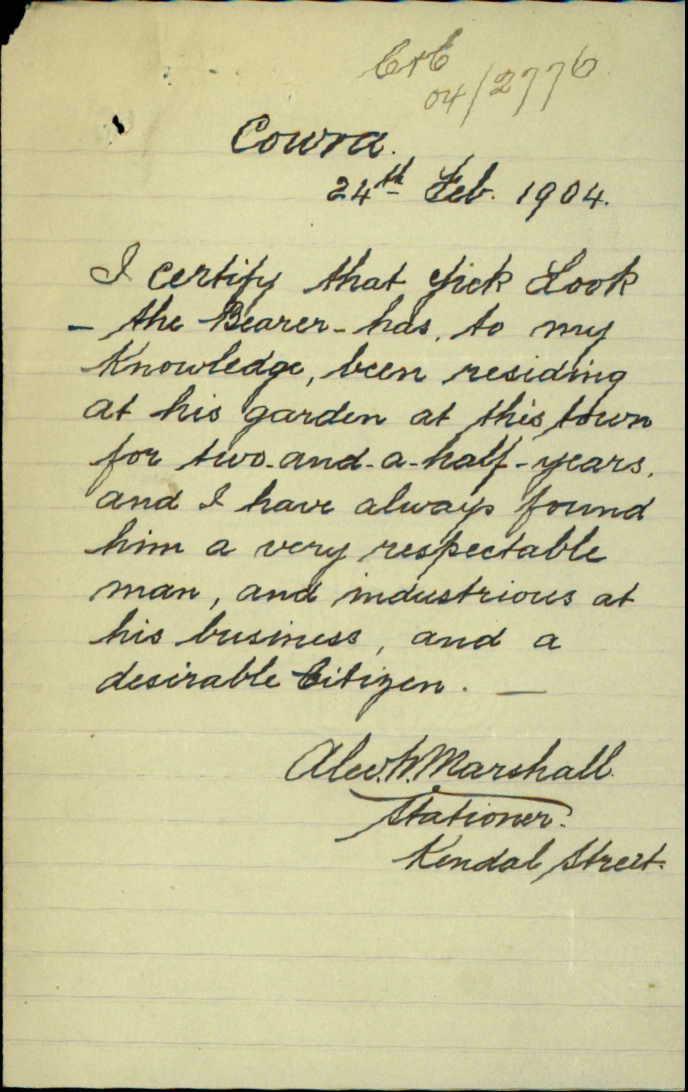 C&C
04/2776
Cowra.
24th Feb. 1904.
I certify that Yick Look
- the Bearer - has, to my
Knowledge, been residing
at his garden at this town
for two-and-a-half-years,
and I have always found
him a very respectable
man, and industrious at
his business, and a
desirable Citizen. —
Alex. W. Marshall.
Stationer.
Kendal Street.